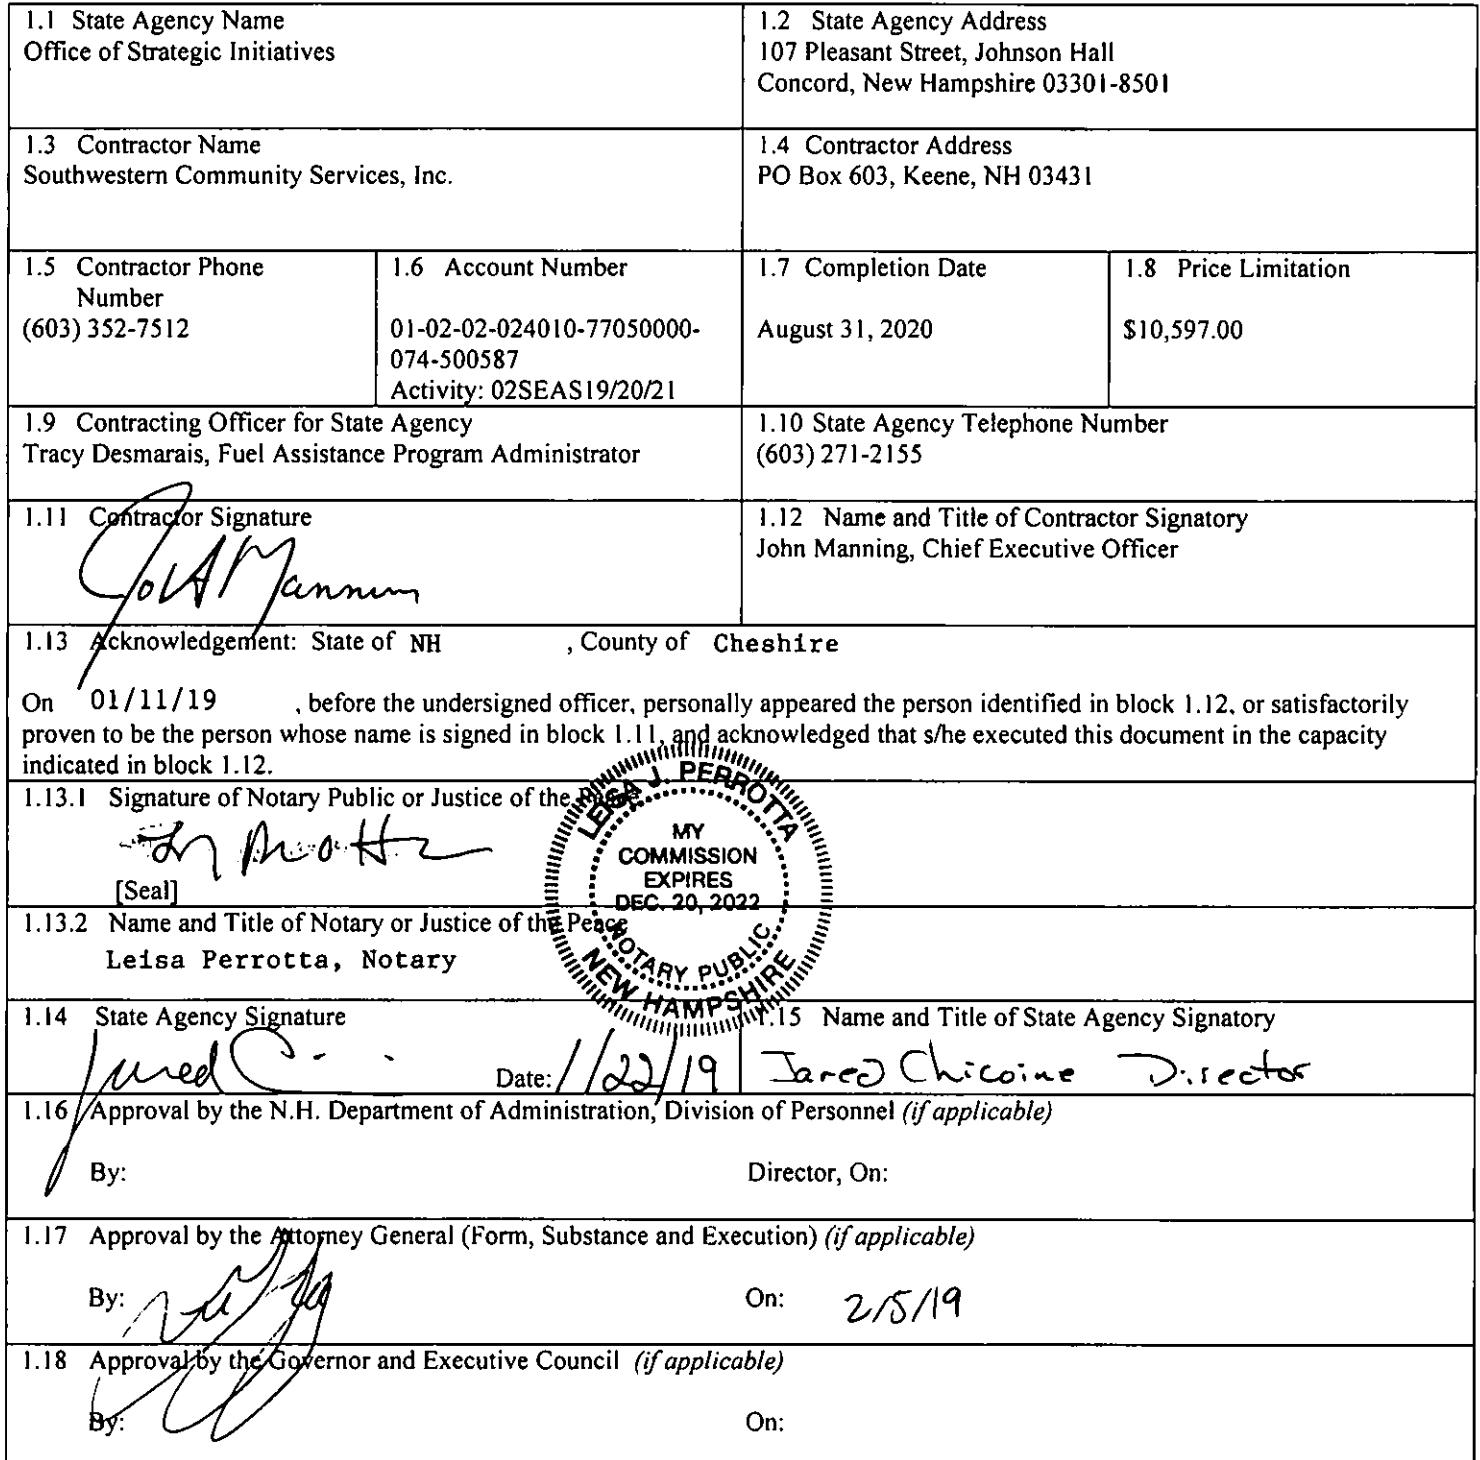 1.1 State Agency Name
Office of Strategic Initiatives
1.2 State Agency Address
107 Pleasant Street, Johnson Hall
Concord, New Hampshire 03301-8501
1.3 Contractor Name
Southwestern Community Services, Inc.
1.4 Contractor Address
PO Box 603, Keene, NH 03431
1.5 Contractor Phone
Number
(603) 352-7512
1.6 Account Number
01-02-02-024010-77050000-
074-500587
Activity: 02SEAS19/20/21
1.7 Completion Date
August 31, 2020
1.8 Price Limitation
$10,597.00
1.9 Contracting Officer for State Agency
Tracy Desmarais, Fuel Assistance Program Administrator
1.10 State Agency Telephone Number
(603) 271-2155
1.11 Contractor Signature
1.12 Name and Title of Contractor Signatory
John Manning, Chief Executive Officer
1.13 Acknowledgement: State of NH , County of Cheshire
On 01/11/19 , before the undersigned officer, personally appeared the person identified in block 1.12, or satisfactorily
proven to be the person whose name is signed in block 1.11, and acknowledged that s/he executed this document in the capacity
indicated in block 1.12.
1.13.1 Signature of Notary Public or Justice of the Peace
[Seal]
LEISA J. PERROTTA
MY
COMMISSION
EXPIRES
DEC. 20, 2022
NOTARY PUBLIC
NEW HAMPSHIRE
1.13.2 Name and Title of Notary or Justice of the Peace
Leisa Perrotta, Notary
1.14 State Agency Signature
Date: 1/22/19
1.15 Name and Title of State Agency Signatory
Jared Chicoine Director
1.16 Approval by the N.H. Department of Administration, Division of Personnel (if applicable)
By: Director, On:
1.17 Approval by the Attorney General (Form, Substance and Execution) (if applicable)
By: On: 2/5/19
1.18 Approval by the Governor and Executive Council (if applicable)
By: On: